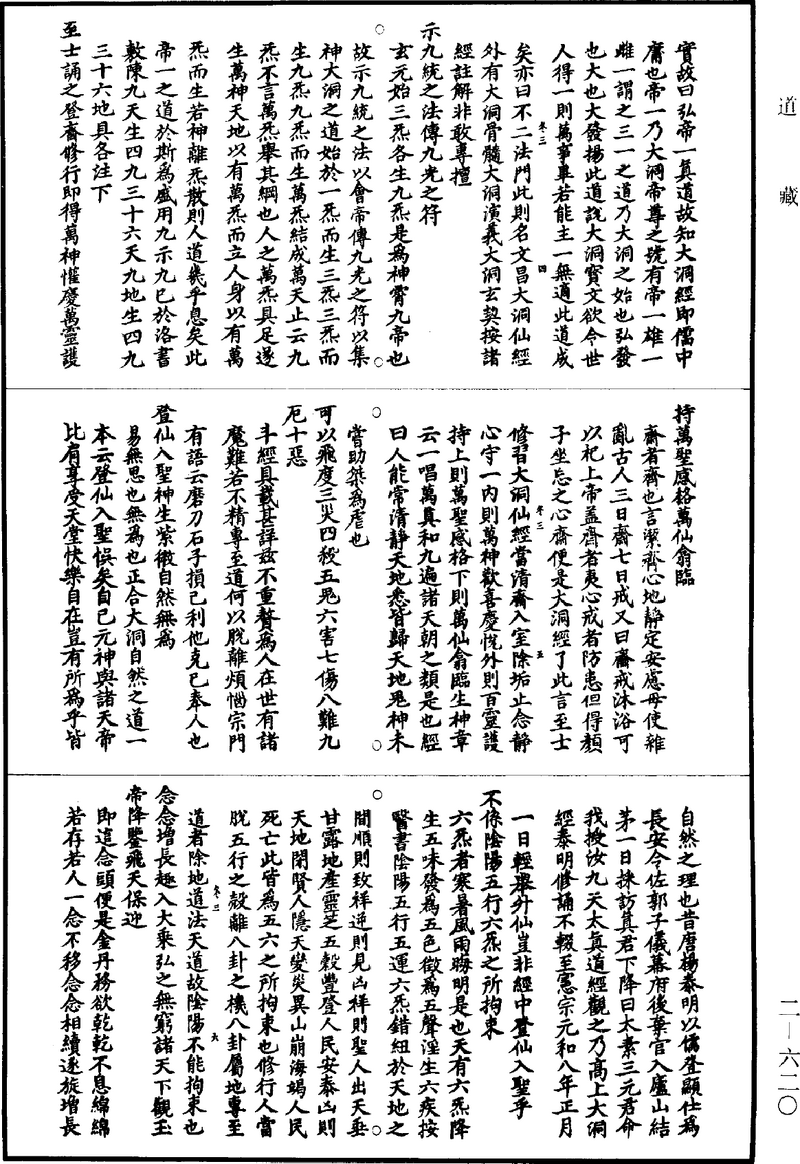 道藏
實故曰弘帝一真道故知大洞經即儒中
庸也帝一乃大洞帝尊之號有帝一雄一
雌一謂之三一之道乃大洞之始也弘發
也大也大發揚此道說大洞寶文欲令世
人得一則萬事畢若能主一無適此道成
卷三 四
矣亦曰不二法門此則名文昌大洞仙經
外有大洞骨髓大洞演義大洞玄契按諸
經註解非敢專擅
示九統之法傳九光之符
玄元始三炁各生九炁是爲神霄九帝也
故示九統之法以會帝傳九光之符以集
神大洞之道始於一炁而生三炁三炁而
生九炁九炁而生萬炁結成萬天止云九
炁不言萬炁舉其綱也人之萬炁具足遂
生萬神天地以有萬炁而立人身以有萬
炁而生若神離炁散則人道幾乎息矣此
帝一之道於斯爲盛用九示九已於洛書
敷陳九天生四九三十六天九地生四九
三十六地具各注下
至士誦之登齋修行即得萬神懽慶萬靈護
持萬聖感格萬仙翕臨
齋者齊也言潔齊心地靜定安慮毋使雜
亂古人三日齋七日戒又曰齋戒沐浴可
以祀上帝蓋齊者夷心戒者防患但得顏
子坐忘之心齋便是大洞經了此言至士
卷三 五
修習大洞仙經當清齋入室除垢止念靜
心守一內則萬神歡喜慶悅外則百靈護
持上則萬聖感格下則萬仙翕臨生神章
云一唱萬真和九遍諸天朝之類是也經
曰人能常清靜天地悉皆歸天地鬼神未
嘗助桀爲虐也
可以飛度三災四殺五鬼六害七傷八難九
厄十惡
斗經具載甚詳玆不重贅爲人在世有諸
魔難若不精專至道何以脫離煩惱宗門
有語云磨刀石子損己利他克己奉人也
登仙入聖神生紫微自然無爲
易無思也無爲也正合大洞自然之道一
本云登仙入聖悞矣自己元神與諸天帝
比肩享受天堂快樂自在豈有所爲乎皆
自然之理也昔唐楊泰明以儒登顯仕爲
長安令佐郭子儀幕府後棄官入廬山結
茅一日採訪真君下降曰太素三元君命
我授汝九天太真道經觀之乃高上大洞
經泰明修誦不輟至憲宗元和八年正月
一日輕舉升仙豈非經中登仙入聖乎
不係陰陽五行六炁之所拘束
六炁者寒暑風雨晦明是也天有六炁降
生五味發爲五色徵爲五聲淫生六疾按
醫書陰陽五行五運六炁錯紐於天地之
間順則致祥逆則見凶祥則聖人出天垂
甘露地產靈芝五穀豐登人民安泰凶則
天地閉賢人隱天變災異山崩海竭人民
死亡此皆爲五六之所拘束也修行人當
脫五行之殼離八卦之機八卦屬地專至
卷三 六
道者除地道法天道故陰陽不能拘束也
念念增長趣入大乘弘之無窮諸天下觀玉
帝降鑒飛天保迎
即這念頭便是金丹務欲乾乾不息綿綿
若存若人一念不移念念相續逐旋增長
二—六二〇